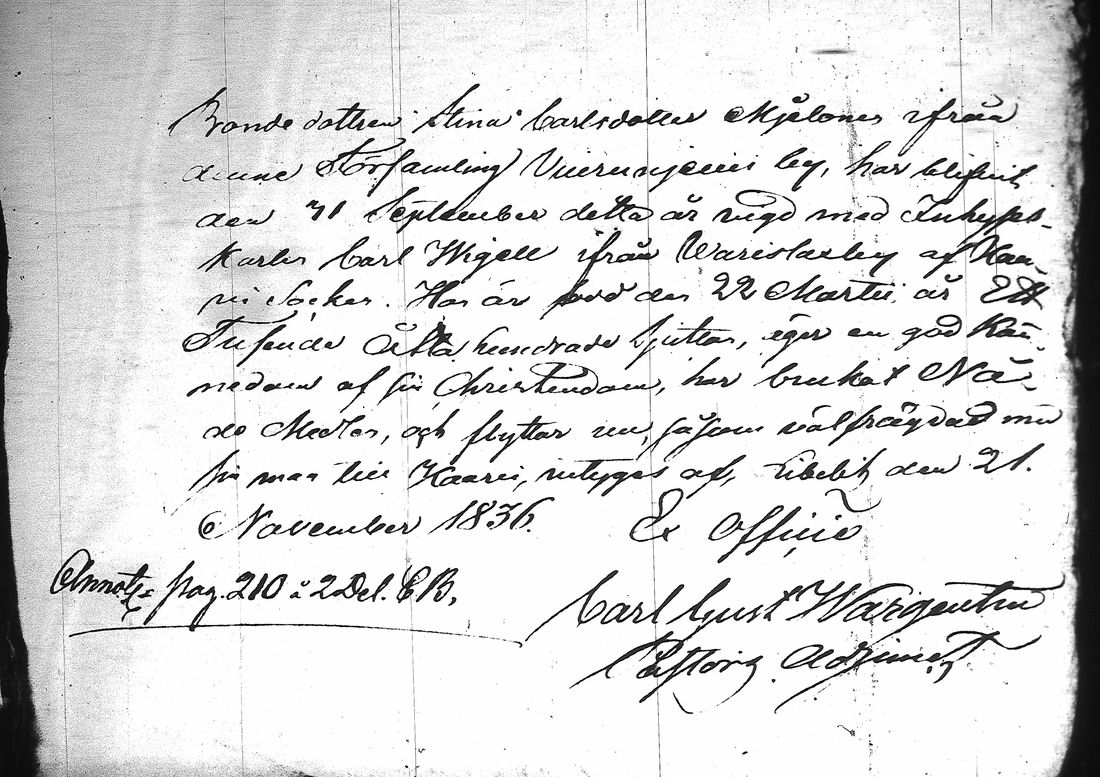 Bonde dottren Stina Carlsdotter Mjelones ifrån
denne Församling Vuerunjemi by, har blifvit
den 31 September detta år vigd med Inhyses-
Karlen Carl Wigell ifrån Warislax by af Kaa-
vi Socken. Hon är född den 22 Martii år Ett
Tusende Åtta hundrade Sjutton, eger en god Kän-
nedom af sin Christendom, har brukat Nå-
de Medlen, och flyttar nu, såsom välfrägdad med
sin man till Kaavi, intygas af, Libelits den 21.
November 1836. Ex officio
Annot: pag. 210 i 2 Del. C B.
Carl Gust Wargentin
Pastoris Adjunct